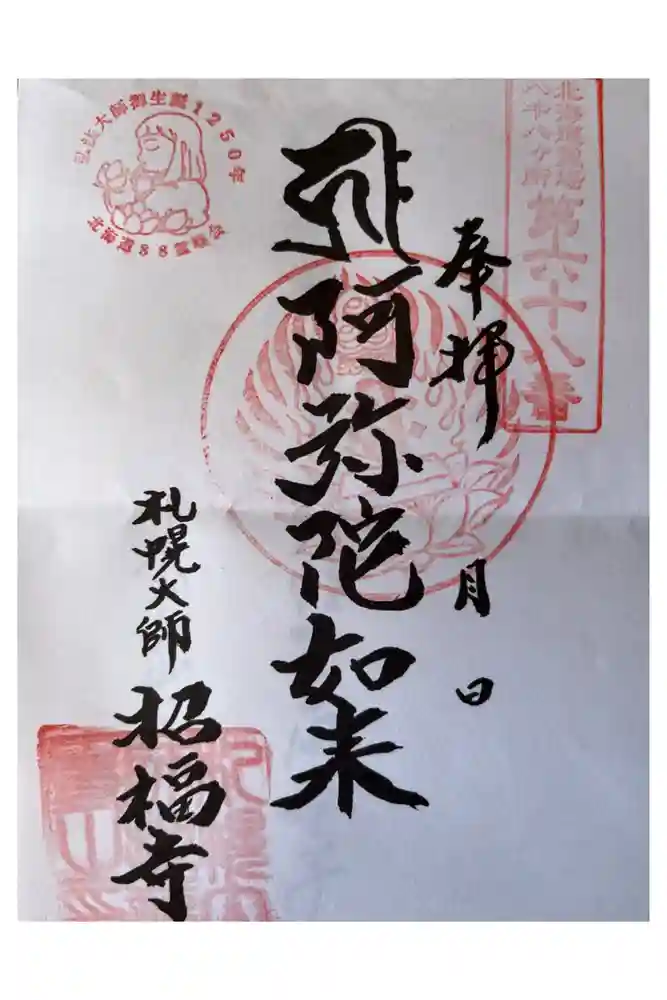 北海道霊場
八十八ヶ所
第六十八番
奉拝
月 日
阿弥陀如来
札幌大師
招福寺
弘法大師御生誕1250年
北海道88霊場会